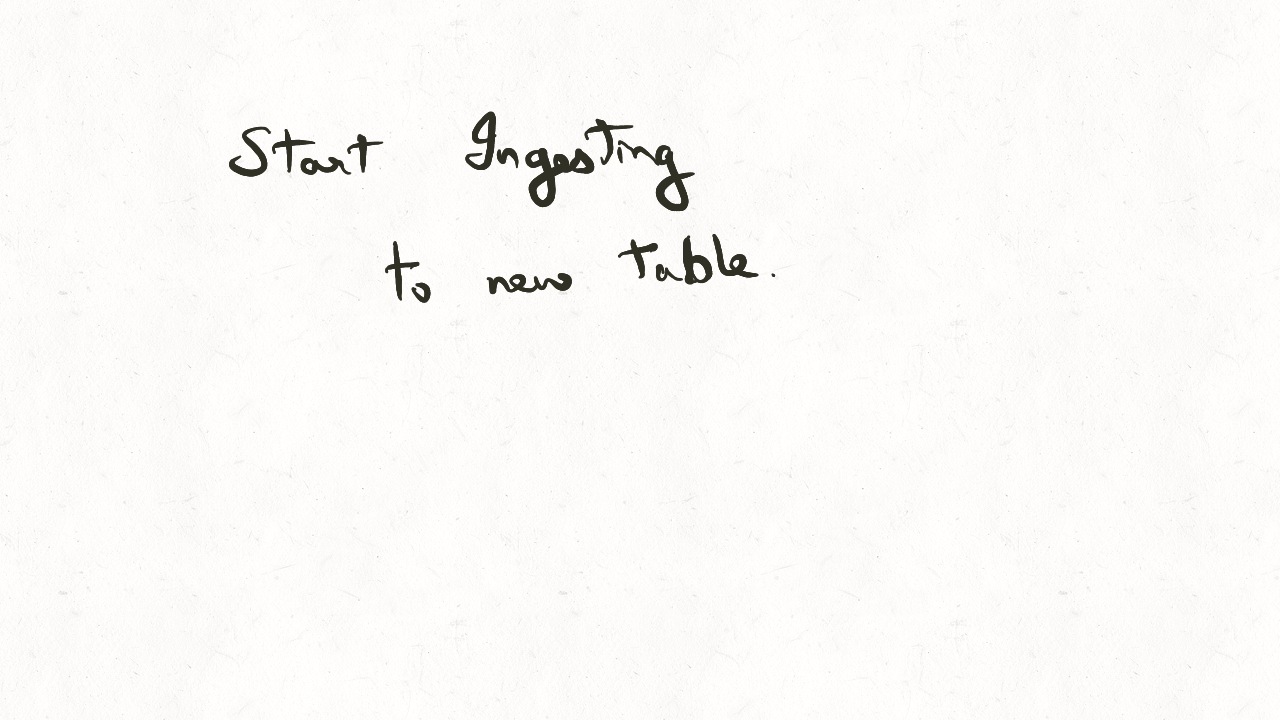 Start Ingesting
to new table.